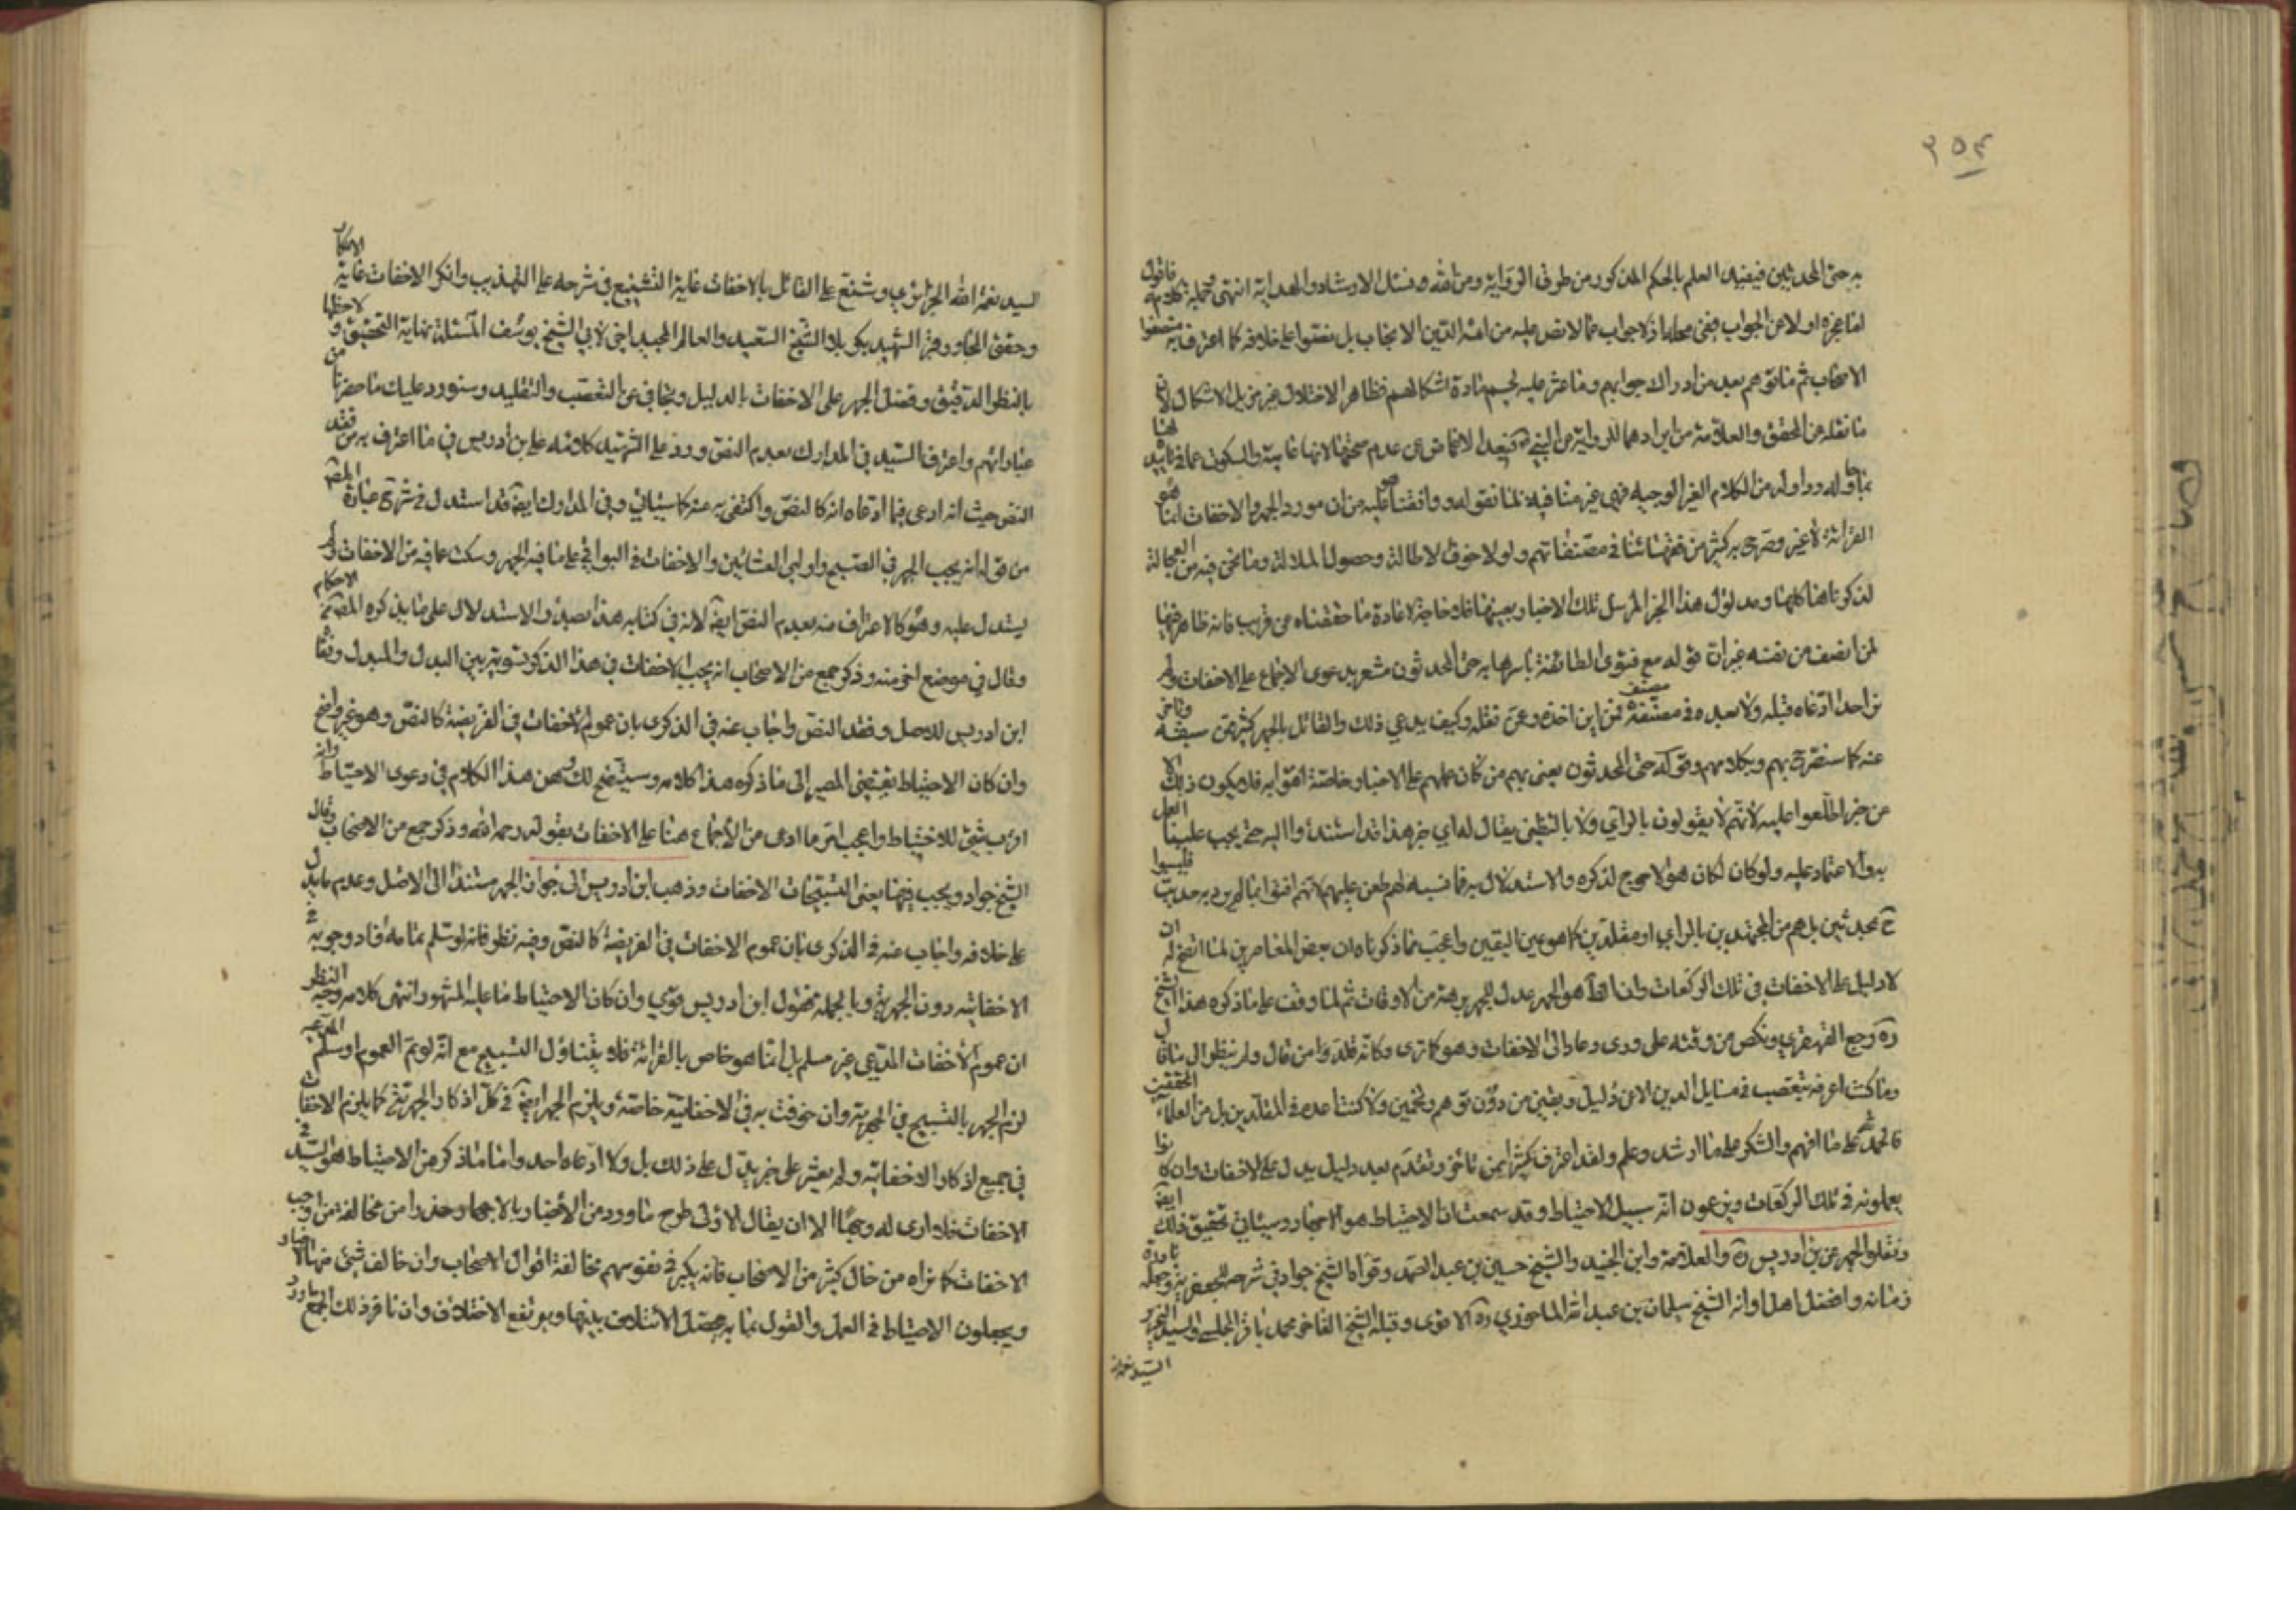 ٢٥٤
به حتى المحدثين فيفيد العلم بالحكم المذكور من طرق الرواية ومن الله نسئل الارشاد والهداية انتهى فاقول
اما عجزه اولا عن الجواب ففى محله اذ لا جواب عما لا نص عليه من ائمة الدين الانجاب بل نصوا على خلافه كما اعترف به
الاصحاب ثم ما توهم بعد من ادراك جوابهم وما عثر عليه لحسم مادة اشكالهم فظاهر الاختلال غير مزيل الاشكال
ما نقله عن المحقق والعلامة من ايرادهما للرواية عن النبي فبعد الاغماض عن عدم صحتها لانها عامية والسكوت عما فى تأييد
بما حاوله وداوله من الكلام الغير الوجيه فهى غير منافية لما نقوله ووافقنا عليه من ان مورد الجهر والاخفات انما هو
القرائة لا غير وصرح به كثير من فقهائنا فى مصنفاتهم ولولا خوف الاطالة وحصول الملالة وما نحن فيه من العجالة
لذكرناها كلها ومدلول هذا الخبر المرسل تلك الاخبار بعينها فلا حاجة لاعادة ما حققناه عن قريب فانه ظاهر
لمن انصف من نفسه غير ان قوله مع فتوى الطائفة باسرها به حتى المحدثون مشعر بدعوى الاجماع على الاخفات ولم
نر احدا ادعاه قبله ولا بعده فى مصنفه مصنف فمن اين اخذه وعمن نقله وكيف يدعي ذلك والقائل بالجهر كثير ممن سبقه وتاخر
عنه كما سنصرح بهم وبكلامهم وقوله حتى المحدثون يعنى بهم من كان عملهم على الاخبار خاصة افتوا به فلا يكون ذلك الا
عن خبر اطلعوا عليه لانهم لا يقولون بالرأي ولا بالتظني يقال له اي خبر هذا قد استندوا اليه حتى يجب علينا العمل
به والاعتماد عليه ولو كان لكان هو الاحوج لذكره والاستدلال به فما نسبه لهم طعن عليهم لانهم افتوا بما لم يرد به حديث فليسوا
ح بمحدثين بل هم من المجتهدين بالراي او مقلدين كما هو عين اليقين واعجب مما ذكرناه ان بعض المعاصرين لما اتضح له ان
لا دليل على الاخفات فى تلك الركعات وان الحق هو الجهر عدل للجهر برهة من الاوقات ثم لما وقف على ما ذكره هذا الشيخ
ره رجع القهقرى ونكص من وقته على ورى وعاد الى الاخفات وهو كما ترى وكانه قلده وامن قال ولم ينظر الى ما قال
وما كنت اعرفه يتعصب فى مسايل الدين الا عن دليل ويقين من دون توهم وتخمين ولا كنت اعده فى المقلدين بل من العلماء المحققين
فالحمد لله على ما افهم والشكر على ما ارشد وعلم ولقد اعترف كثير ممن تاخر وتقدم بعدم دليل يدل على الاخفات وان كانوا
يعملونه فى تلك الركعات ويزعمون انه سبيل الاحتياط وقد سمعت ان الاحتياط هو الاجهار وسيأتي تحقيق ذلك ايضا
ونقلوا الجهر عن بن ادريس ره والعلامة وابن الجنيد والشيخ حسين بن عبد الصمد وقواه الشيخ جواد فى شرحه للجعفرية وجعله نادرة
زمانه وافضل اهل اوانه الشيخ سليمان بن عبد الله الماحوزي ره الاقوى وقبله الشيخ الفاخر محمد باقر المجلسي والسيد
السيد نعمة
السيد نعمة الله الجزائري وشنع على القائل بالاخفات غاية التشنيع فى شرحه على التهذيب وانكر الاخفات غاية الانكار
وحقق المجاور وفن الشهيد بكربلا الشيخ السعيد والعالم المجيد اخى لابي الشيخ يوسف المسئلة نهاية التحقيق ولاحظها
بالنظر الدقيق وفضل الجهر على الاخفات بالدليل وتجافى عن التعصب والتقليد وسنورد عليك ما حضرنا من
عباراتهم واعترف السيد في المدارك بعدم النص ورد على الشهيد كلامه على بن ادريس في ما اعترف به من فقد
النص حيث انه ادعى فيما ادعاه انه كالنص واكتفى به منه كما سيأتي وفى المدارك ايضا قد استدل فى شرح عبارة المص
من قوله انه يجب الجهر فى الصبح واولى العشائين والاخفات فى البواقي على ما فيه الجهر وسكت عما فيه من الاخفات ولم
يستدل عليه وهو كالاعتراف منه بعدم النص ايضا لانه فى كتابه هذا بصدد الاستدلال على ما يذكره المص من الاحكام
وقال فى موضع اخر منه وذكر جمع من الاصحاب انه يجب الاخفات فى هذا الذكر تسوية بين البدل والمبدل ونفاه
ابن ادريس للاصل وفقد النص واجاب عنه فى الذكرى بان عموم الاخفات فى الفريضة كالنص وهو غير واضح
وان كان الاحتياط يقتضى المصير الى ما ذكره هذا كلامه وسيتضح لك وهن هذا الكلام فى دعوى الاحتياط وانه
اقرب شئ للاحتياط واعجب انه ربما ادعى من الاجماع هنا على الاخفات بقوله رحمه الله وذكر جمع من الاصحاب وقال
الشيخ جواد ويجب فيها يعنى التسبيحات الاخفات وذهب ابن ادريس الى جواز الجهر مستندا الى الاصل وعدم ما يدل
على خلافه واجاب عنه فى الذكرى بان عموم الاخفات فى الفريضة كالنص وفيه نظر فانه لو سلم تمامه فلا وجوبه فى
الاخفاتية دون الجهرية وبالجملة فقول ابن ادريس قوي وان كان الاحتياط ما عليه المشهور انتهى كلامه وجه النظر
ان عموم الاخفات المدعى غير مسلم بل انما هو خاص بالقرائة فلا يتناول التسبيح مع انه لو تم العموم وسلم المدعى
لزم الجهر بالتسبيح فى الجهرية وان خوفت به فى الاخفاتية خاصة ويلزم الجهر ايضا فى كل اذكار الجهرية كما يلزم الاخفات
فى جميع اذكار الاخفاتية ولم يعثر على خبر يدل على ذلك بل ولا ادعاه احد واما ما ذكر من الاحتياط هو لشيد فى
الاخفات فلا ارى له وجها الا ان يقال الاولى طرح ما ورد من الاخبار بالاجهار وحذرا من مخالفة من اوجب
الاخفات كما نراه من حال كثير من الاصحاب فانه يكبر فى نفوسهم مخالفة اقوال الاصحاب وان خالف شئ منها الاخبار
ويجعلون الاحتياط فى العمل والقول بما به يحصل الائتلاف بينها ويرتفع الاختلاف وان نافر ذلك الجمع ما ورد